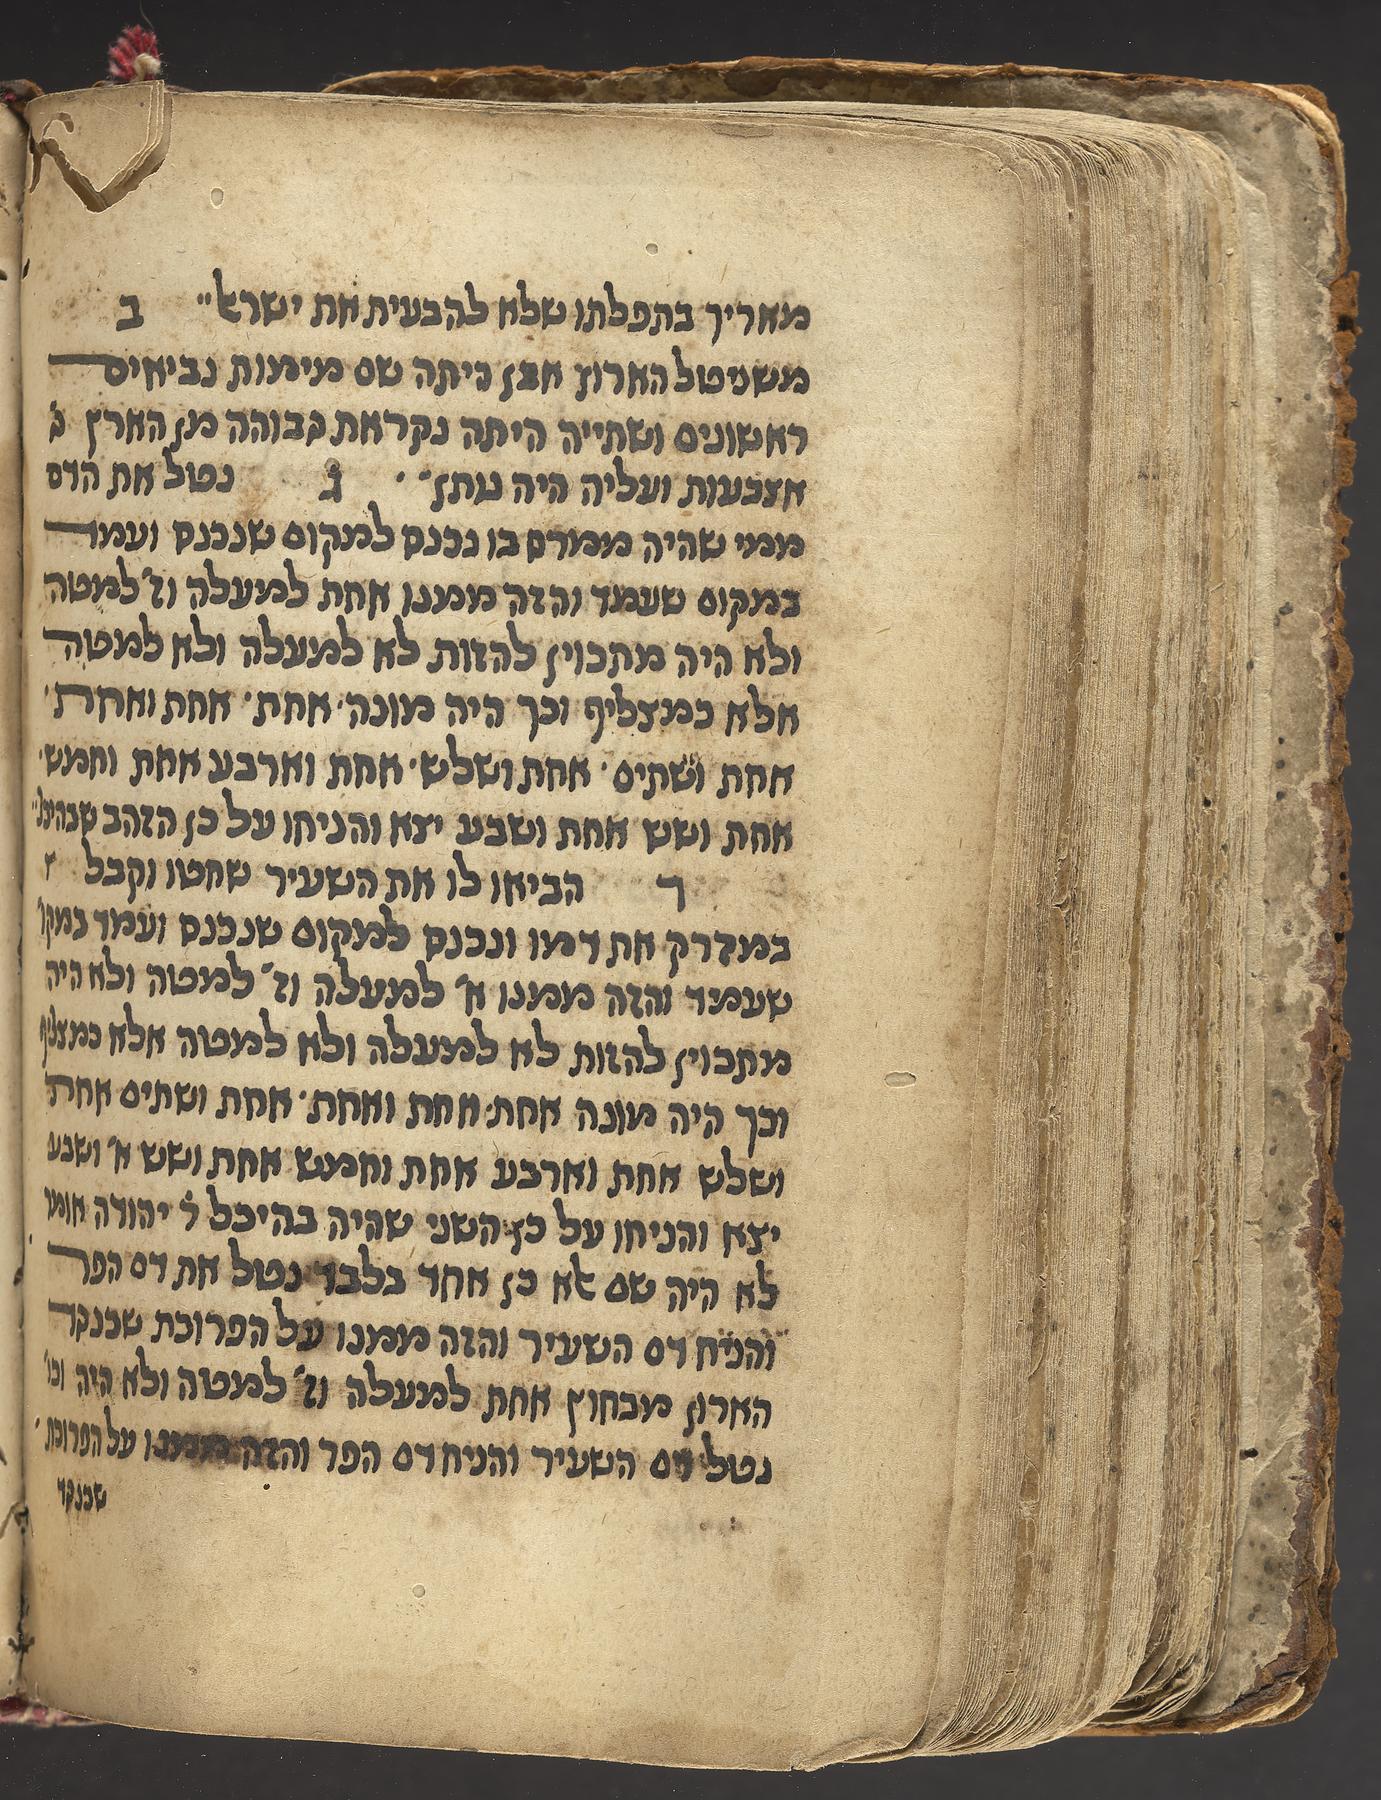 מאריך בתפלתו שלא להבעית את ישראל״ ב
משניטל הארון אבן היתה שם מימות נביאים
ראשונים ושתייה היתה נקראת גבוהה מן הארץ ג׳
אצבעות ועליה היה נותן״ ג נטל את הדם
ממי שהיה ממרס בו נכנס למקום שנכנס ועמד
במקום שעמד והזה ממנו אחת למעלה וז׳ למטה
ולא היה מתכוין להזות לא למעלה ולא למטה
אלא כמצליף וכך היה מונה׳ אחת׳ אחת ואחת׳
אחת ושתים׳ אחת ושלש׳ אחת וארבע אחת וחמש׳
אחת ושש אחת ושבע יצא והניחו על כן הזהב שבהיכל״
ד הביאו לו את השעיר שחטו וקבל
במזרק את דמו ונכנס למקום שנכנס ועמד במקו׳
שעמד והזה ממנו א׳ למעלה וז׳ למטה ולא היה
מתכוין להזות לא למעלה ולא למטה אלא כמצליף
וכך היה מונה אחת׳ אחת ואחת׳ אחת ושתים אחת
ושלש אחת וארבע אחת וחמש אחת ושש א׳ ושבע
יצא והניחו על כן השני שהיה בהיכל ר׳ יהודה אומ׳
לא היה שם אלא כן אחד בלבד נטל את דם הפר
והניח דם השעיר והזה ממנו על הפרוכת שכנגד
הארון מבחוץ אחת למעלה וז׳ למטה ולא היה וכו׳
נטל דם השעיר והניח דם הפר והזה ממנו על הפרוכת׳
שכנגד